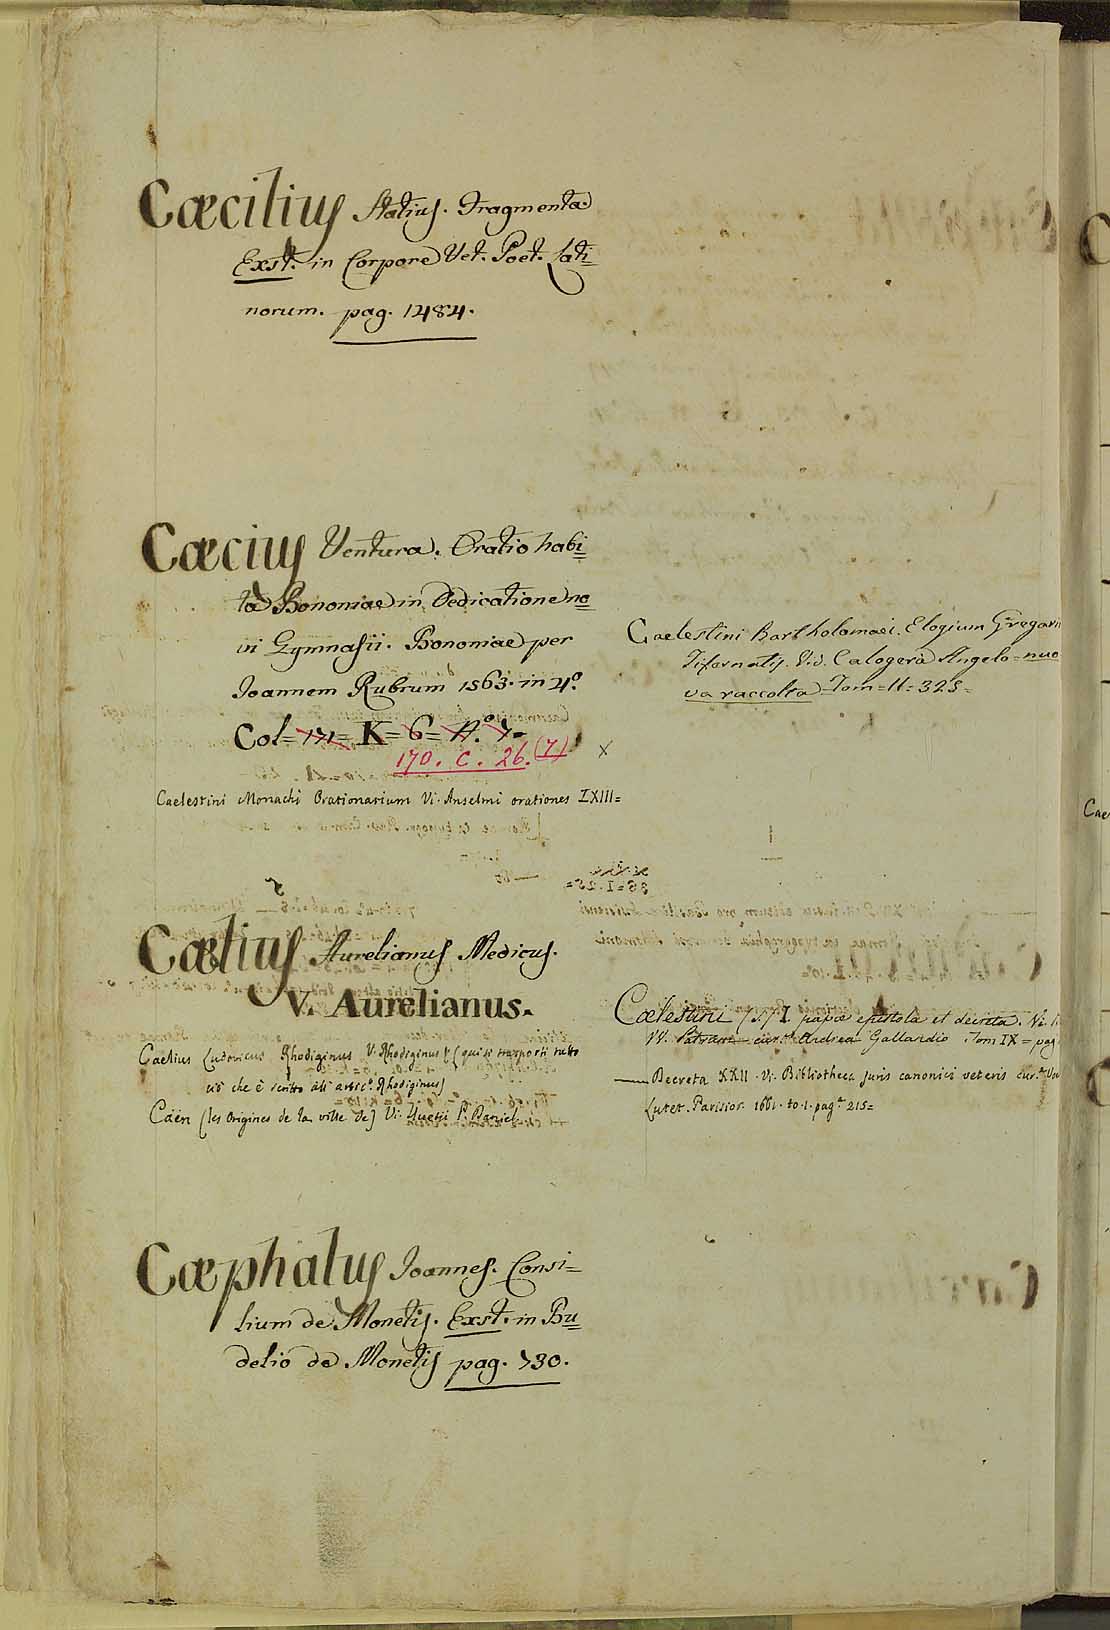 Cæcilius Statius. Fragmenta
Exst. in Corpore Vet. Poet. Lati=
norum. pag. 1484.
Cæcius Ventura. Oratio habi=
ta Bononiae in Dedicatione no=
vi Gymnasii. Bononiae per
Joannem Rubrum 1563. in 4.º
Col= 171= K= 6= A.º 7=
170. C. 26.(7)
x
Caelestini Monachi Orationarium Vi. Anselmi orationes LXIII=
Cælius Aurelianus Medicus.
V. Aurelianus.
Caelius Ludovicus Rhodiginus V. Rhodiginus (qui si trasporti tutto
ciò che è scritto all' artic.º Rhodiginus)
Caen (les Origines de la ville de) Vi. Huetii P. Daniel
Cæphalus Joannes. Consi=
lium de Monetis. Exst. in Bu=
delio de Monetis pag. 730.
Caelestini Bartholomaei. Elogium Gregorii
Tifernatis. Vid. Calogerà Angelo= nuo
va raccolta Tom= 11= 325=
Cælestini (s.) I papæ epistola et decreta. Vi.
VV. Patrum cur.te Andrea Gallandio Tom IX= pag
— Decreta XXII. Vi. Bibliotheca Juris canonici veteris cur.te
Lutet. Parisior. 1661. to. 1. pag.a 215=